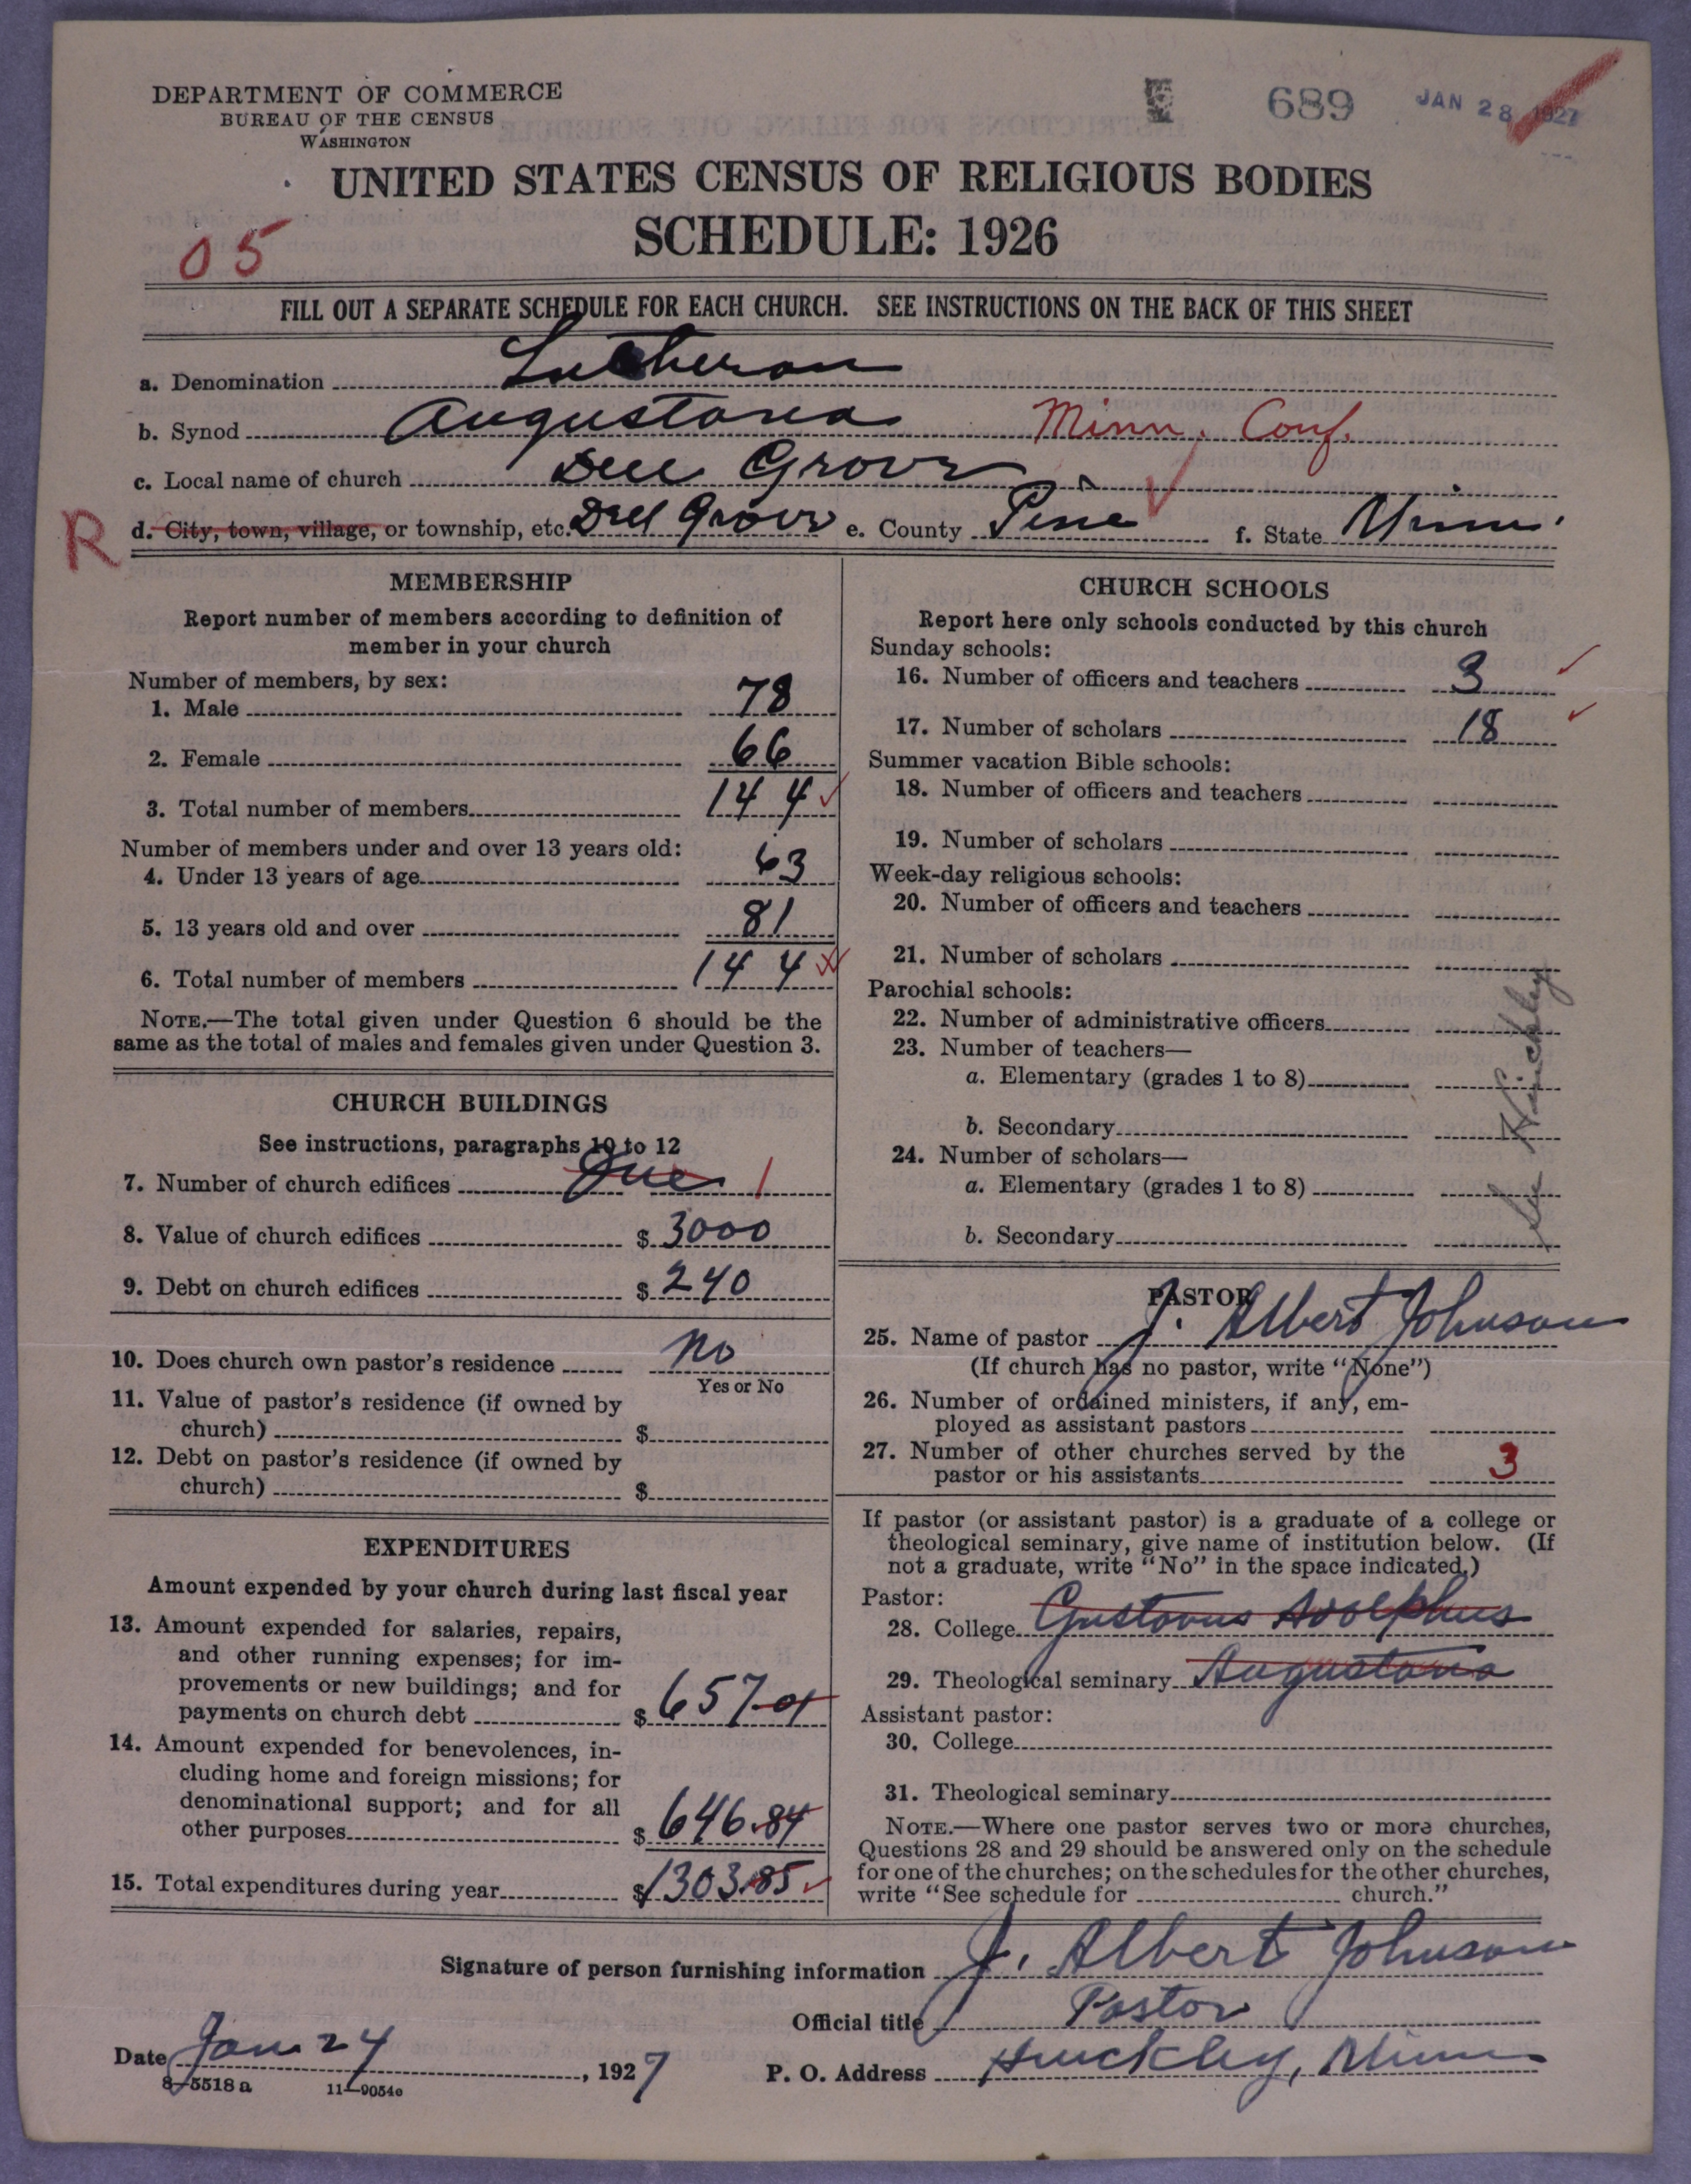 DEPARTMENT OF COMMERCE
BUREAU OF THE CENSUS
WASHINGTON
689
JAN 28 1927
UNITED STATES CENSUS OF RELIGIOUS BODIES
SCHEDULE: 1926
05
FILL OUT A SEPARATE SCHEDULE FOR EACH CHURCH. SEE INSTRUCTIONS ON THE BACK OF THIS SHEET
a. Denomination Lutheran
b. Synod Augustana Minn. Conf.
c. Local name of church Dell Grove
R d. City, town, village, or township, etc. Dell Grove e. County Pine f. State Minn.
MEMBERSHIP
Report number of members according to definition of
member in your church
Number of members, by sex:
1. Male 78
2. Female 66
3. Total number of members 144
Number of members under and over 13 years old:
4. Under 13 years of age 63
5. 13 years old and over 81
6. Total number of members 144
NOTE.—The total given under Question 6 should be the
same as the total of males and females given under Question 3.
CHURCH BUILDINGS
See instructions, paragraphs 10 to 12
7. Number of church edifices One 1
8. Value of church edifices $ 3000
9. Debt on church edifices $ 240
10. Does church own pastor's residence No
Yes or No
11. Value of pastor's residence (if owned by
church) $
12. Debt on pastor's residence (if owned by
church) $
EXPENDITURES
Amount expended by your church during last fiscal year
13. Amount expended for salaries, repairs,
and other running expenses; for im-
provements or new buildings; and for
payments on church debt $ 657.01
14. Amount expended for benevolences, in-
cluding home and foreign missions; for
denominational support; and for all
other purposes $ 646.84
15. Total expenditures during year $ 1303.85
CHURCH SCHOOLS
Report here only schools conducted by this church
Sunday schools:
16. Number of officers and teachers 3
17. Number of scholars 18
Summer vacation Bible schools:
18. Number of officers and teachers
19. Number of scholars
Week-day religious schools:
20. Number of officers and teachers
21. Number of scholars
Parochial schools:
22. Number of administrative officers
23. Number of teachers—
a. Elementary (grades 1 to 8)
b. Secondary
24. Number of scholars—
a. Elementary (grades 1 to 8)
b. Secondary
See Hinckley
PASTOR
25. Name of pastor J. Albert Johnson
(If church has no pastor, write "None")
26. Number of ordained ministers, if any, em-
ployed as assistant pastors
27. Number of other churches served by the
pastor or his assistants 3
If pastor (or assistant pastor) is a graduate of a college or
theological seminary, give name of institution below. (If
not a graduate, write "No" in the space indicated.)
Pastor:
28. College Gustavus Adolphus
29. Theological seminary Augustana
Assistant pastor:
30. College
31. Theological seminary
NOTE.—Where one pastor serves two or more churches,
Questions 28 and 29 should be answered only on the schedule
for one of the churches; on the schedules for the other churches,
write "See schedule for church."
Signature of person furnishing information J. Albert Johnson
Official title Pastor
Date Jan 24, 1927 P. O. Address Hinckley, Minn
8-5518 a 11-9054c